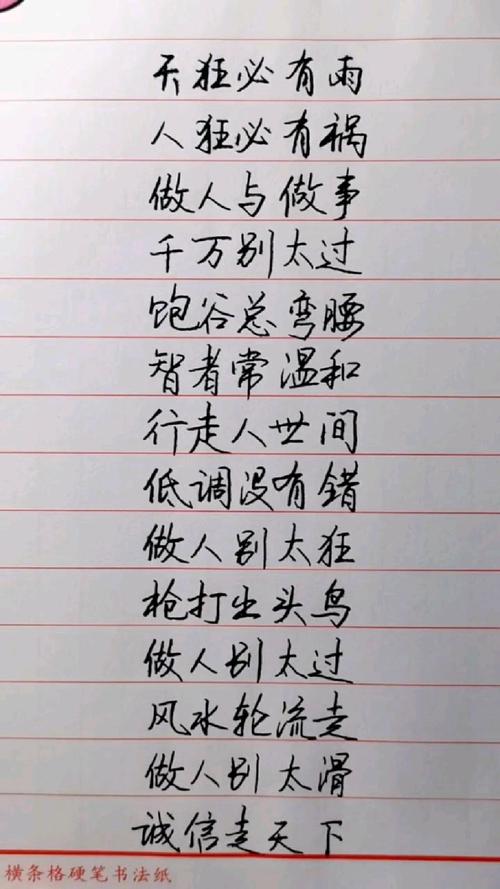 天狂必有雨
人狂必有祸
做人与做事
千万别太过
饱谷总弯腰
智者常温和
行走人世间
低调没有错
做人别太狂
枪打出头鸟
做人别太过
风水轮流走
做人别太滑
诚信走天下
横条格硬笔书法纸